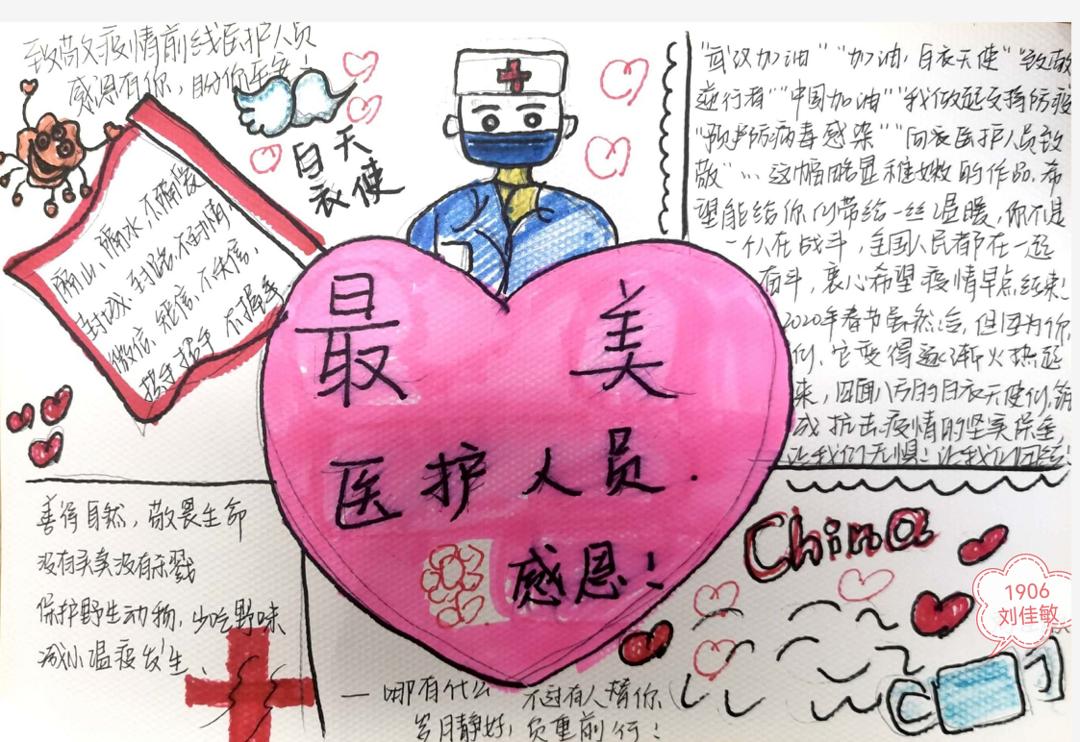 致敬疫情前线医护人员
感恩有你，
白天
衣使
隔山、隔水、不隔爱
封城、封路、不封情
微信、短信、不失信、
招手 挥手 不握手
最美
医护人员.
感恩！
"武汉加油""加油，白衣天使""致敬
逆行者""中国加油""我做起支持防疫
"预严防病毒感染""向衣医护人员致
敬"…这幅略显稚嫩的作品.希
望能给你们带给一丝温暖，你不是
一个人在战斗，全国人民都在一起
奋斗，衷心希望疫情早点结束！
2020年春节虽然冷，但因为你
们、它变得逐渐火热起
来，四面八方的白衣天使们，筑
成抗击疫情的坚实保垒，
让我们无惧！让我们团结！
善待自然，敬畏生命
没有买卖没有杀戮
保护野生动物，少吃野味
减小温疫发生、
China
1906
刘佳敏
—哪有什么 不过有人替你
岁月静好，负重前行！